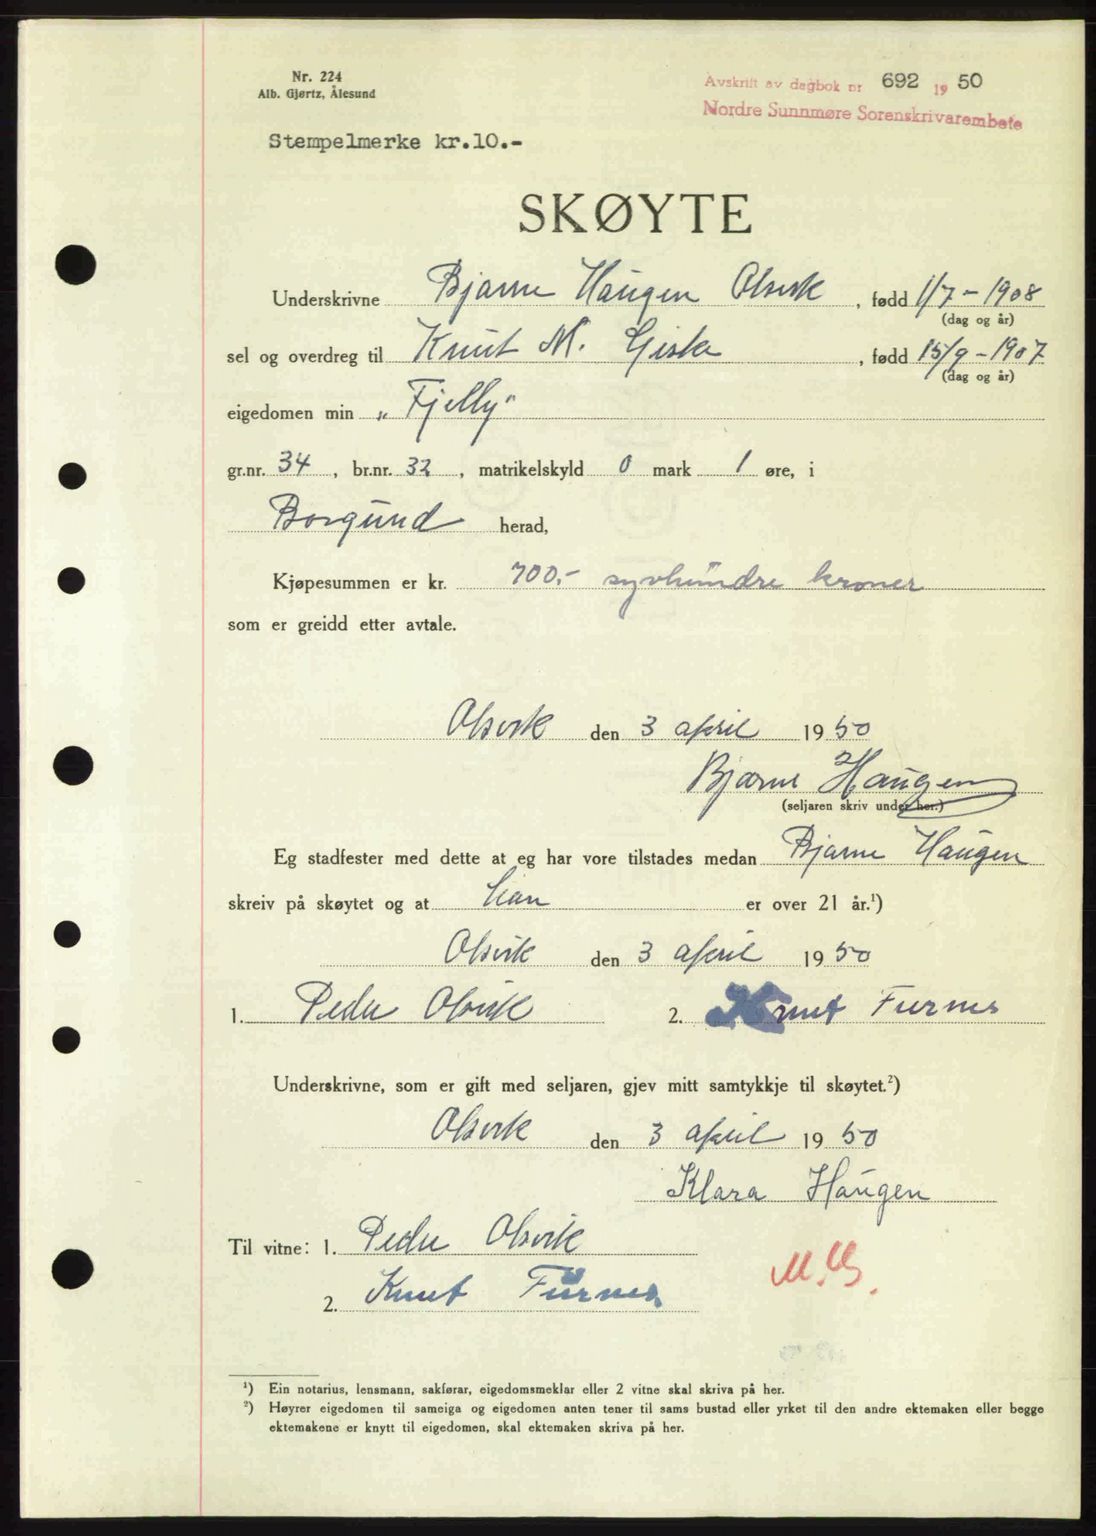 Nr. 224
Alb. Gjørtz, Ålesund
Avskrift av dagbok nr 692 1950
Nordre Sunnmøre Sorenskrivarembete
Stempelmerke kr.10.-
SKØYTE
Underskrivne Bjarne Haugen Olsvik, fødd 1/7-1908
(dag og år)
sel og overdreg til Knut M. Giske, fødd 15/9-1907
(dag og år)
eigedomen min „Fjelly"
gr.nr. 34, br.nr. 32, matrikelskyld 0 mark 1 øre, i
Borgund herad,
Kjøpesummen er kr. 700,- syvhundre kroner
som er greidd etter avtale.
Olsvik den 3 april 1950
Bjarne Haugen
(seljaren skriv under her.)
Eg stadfester med dette at eg har vore tilstades medan Bjarne Haugen
skreiv på skøytet og at han er over 21 år.¹)
Olsvik den 3 april 1950
1. Peder Olsvik 2. Knut Furnes
Underskrivne, som er gift med seljaren, gjev mitt samtykkje til skøytet.²)
Olsvik den 3 april 1950
Klara Haugen
Til vitne: 1. Peder Olsvik
2. Knut Furnes
¹) Ein notarius, lensmann, sakførar, eigedomsmeklar eller 2 vitne skal skriva på her.
²) Høyrer eigedomen til sameiga og eigedomen anten tener til sams bustad eller yrket til den andre ektemaken eller begge
ektemakene er knytt til eigedomen, skal ektemaken skriva på her.